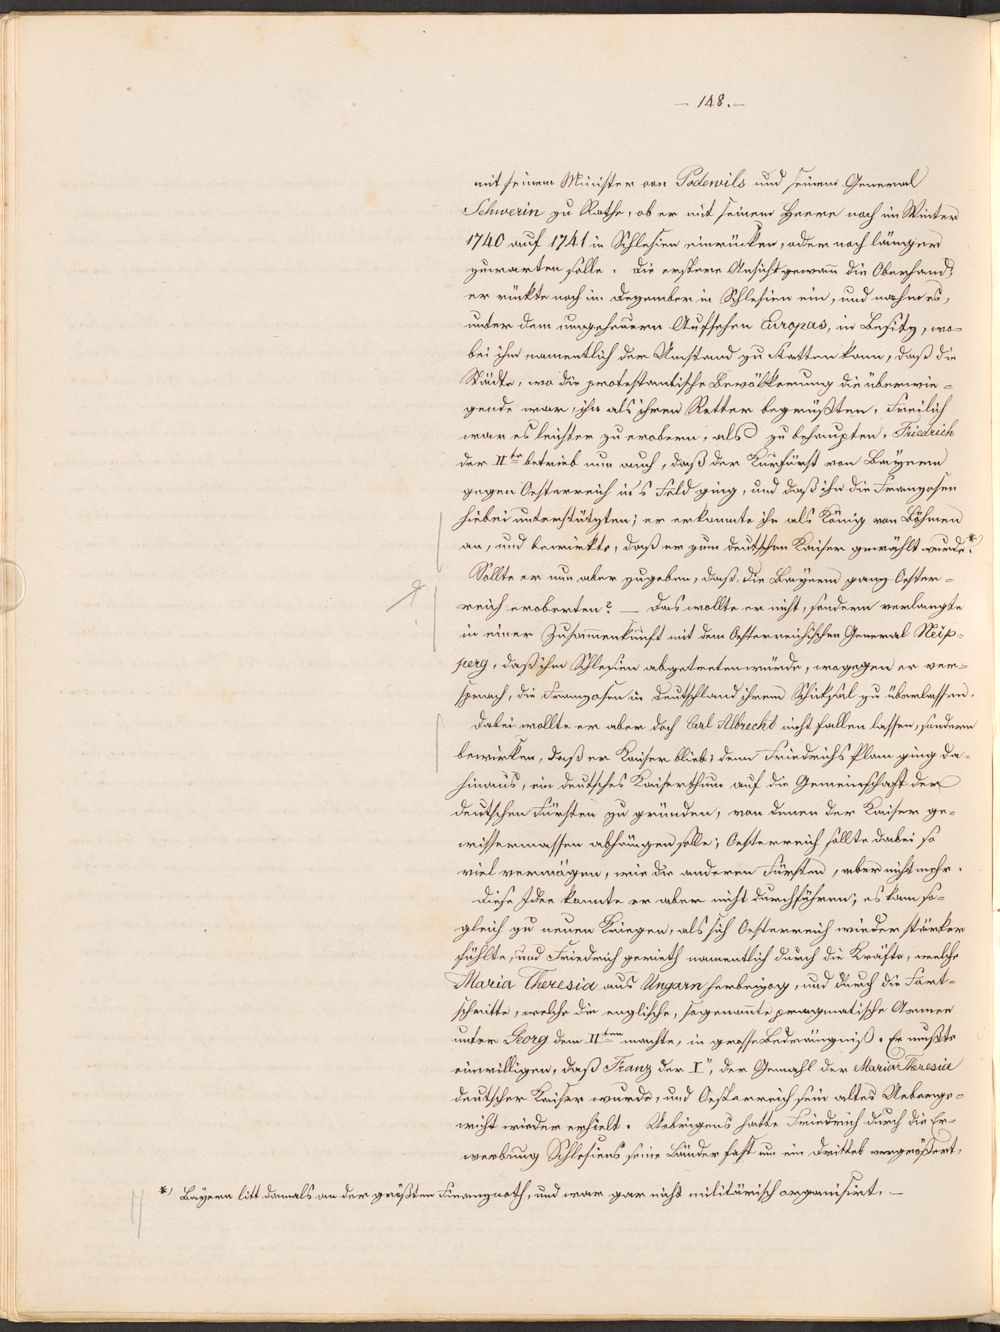 — 148. —
mit seinem Minister von Podewils und seinem General
Schwerin zu Rathe, ob er mit seinem Heere noch im Winter
1740 auf 1741 in Schlesien einrücken, oder noch länger
zuwarten solle. Die erstere Ansicht gewann die Oberhand;
er rückte noch im Dezember in Schlesien ein, und nahm es,
unter dem ungeheuern Aufsehen Europas, in Besitz, wo-
bei ihm namentlich der Umstand zu Statten kam, daß die
Städte, wo die protestantische Bevölkerung die überwie-
gende war, ihn als ihren Retter begrüßten. Freilich
war es leichter zu erobern, als zu behaupten. Friedrich
der IIte betrieb nun auch, daß der Kurfürst von Bayern
gegen Oesterreich in's Feld ging, und daß ihn die Franzosen
hiebei unterstützten; er erkannte ihn als König von Böhmen
an, und bewirkte, daß er zum deutschen Kaiser gewählt wurde.*)
Sollte er nun aber zugeben, daß die Bayern ganz Oester-
reich eroberten? — Das wollte er nicht, sondern verlangte
in einer Zusammenkunft mit dem Oesterreichischen General Neip-
perg, daß ihm Schlesien abgetreten würde, wogegen er ver-
sprach, die Franzosen in Deutschland ihrem Schicksal zu überlassen.
Dabei wollte er aber doch Carl Albrecht nicht fallen lassen, sondern
bewirken, daß er Kaiser blieb; denn Friedrichs Plan ging da-
hinaus, ein deutsches Kaiserthum auf die Gemeinschaft der
deutschen Fürsten zu gründen, von denen der Kaiser ge-
wissermassen abhängen solle; Oesterreich sollte dabei so
viel vermögen, wie die anderen Fürsten, aber nicht mehr.
Diese Idee konnte er aber nicht durchführen; es kam so-
gleich zu neuen Kriegen, als sich Oesterreich wieder stärker
fühlte, und Friedrich gerieth namentlich durch die Kräfte, welche
Maria Theresia aus Ungarn herbeizog, und durch die Fort-
schritte, welche die englische, sogenannte pragmatische Armee
unter Georg dem IIten machte, in grosse Bedrängniß. Er mußte
einwilligen, daß Franz der I", der Gemahl der Maria Theresia
deutscher Kaiser wurde, und Oesterreich sein altes Ueberge-
wicht wieder erhielt. Uebrigens hatte Friedrich durch die Er-
werbung Schlesiens seine Länder fast um ein Drittel vergrößert,
*) Bayern litt damals an der größten Finanznoth, und war gar nicht militärisch organisirt. —